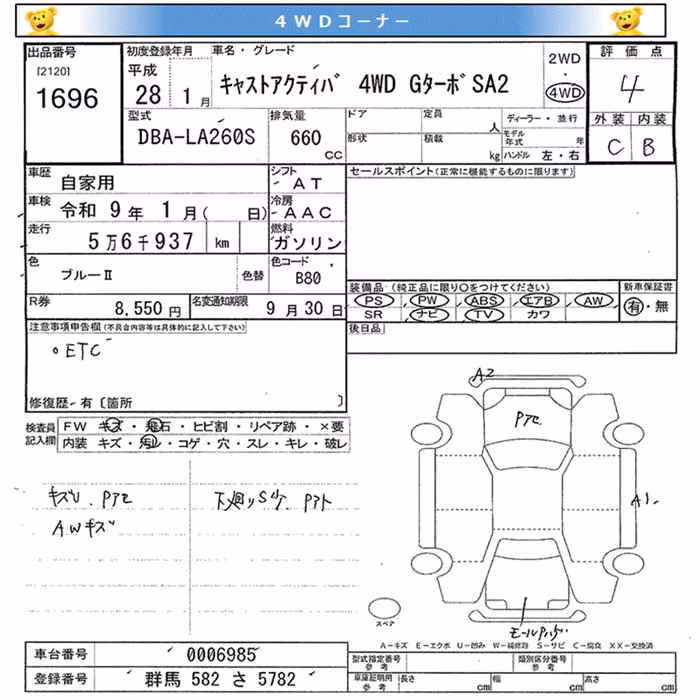 4WDコーナー
出品番号
[2120]
1696
初度登録年月
平成
28 1月
車名・グレード
キャストアクティバ 4WD GターボSA2
2WD
・
4WD
評価点
4
外装 内装
C B
型式
DBA-LA260S
排気量
660
CC
ドア
形状
定員
人
積載
kg
ディーラー・並行
モデル年式 年
ハンドル 左・右
車歴
自家用
シフト
AT
車検
令和 9年 1月( 日)
冷房
AAC
走行
5万6千937 km
燃料
ガソリン
色
ブルーⅡ
色替
色コード
B80
R券
8,550円
名変通知期限
9月30日
セールスポイント(正常に機能するものに限ります)
装備品(純正品に限り○をつけてください)
PS PW ABS エアB AW
SR ナビ TV カワ
新車保証書
有・無
後日品
注意事項申告欄(不具合内容等は具体的に記入して下さい)
○ETC
修復歴-有〔箇所 〕
検査員記入欄
FW キズ・飛石・ヒビ割・リペア跡・×要
内装 キズ・汚レ・コゲ・穴・スレ・キレ・破レ
キズU.PアE
AWキズ
下廻りSサケ.Pアト
A2
PアE
A1
スペア
A-キズ E-エクボ U-凹み W-補修跡 S-サビ C-腐食 XX-交換済
車台番号
0006985
登録番号
群馬 582 さ 5782
型式指定番号
参考
類別区分番号
参考
車庫証明用
参考
長さ cm
幅 cm
高さ cm